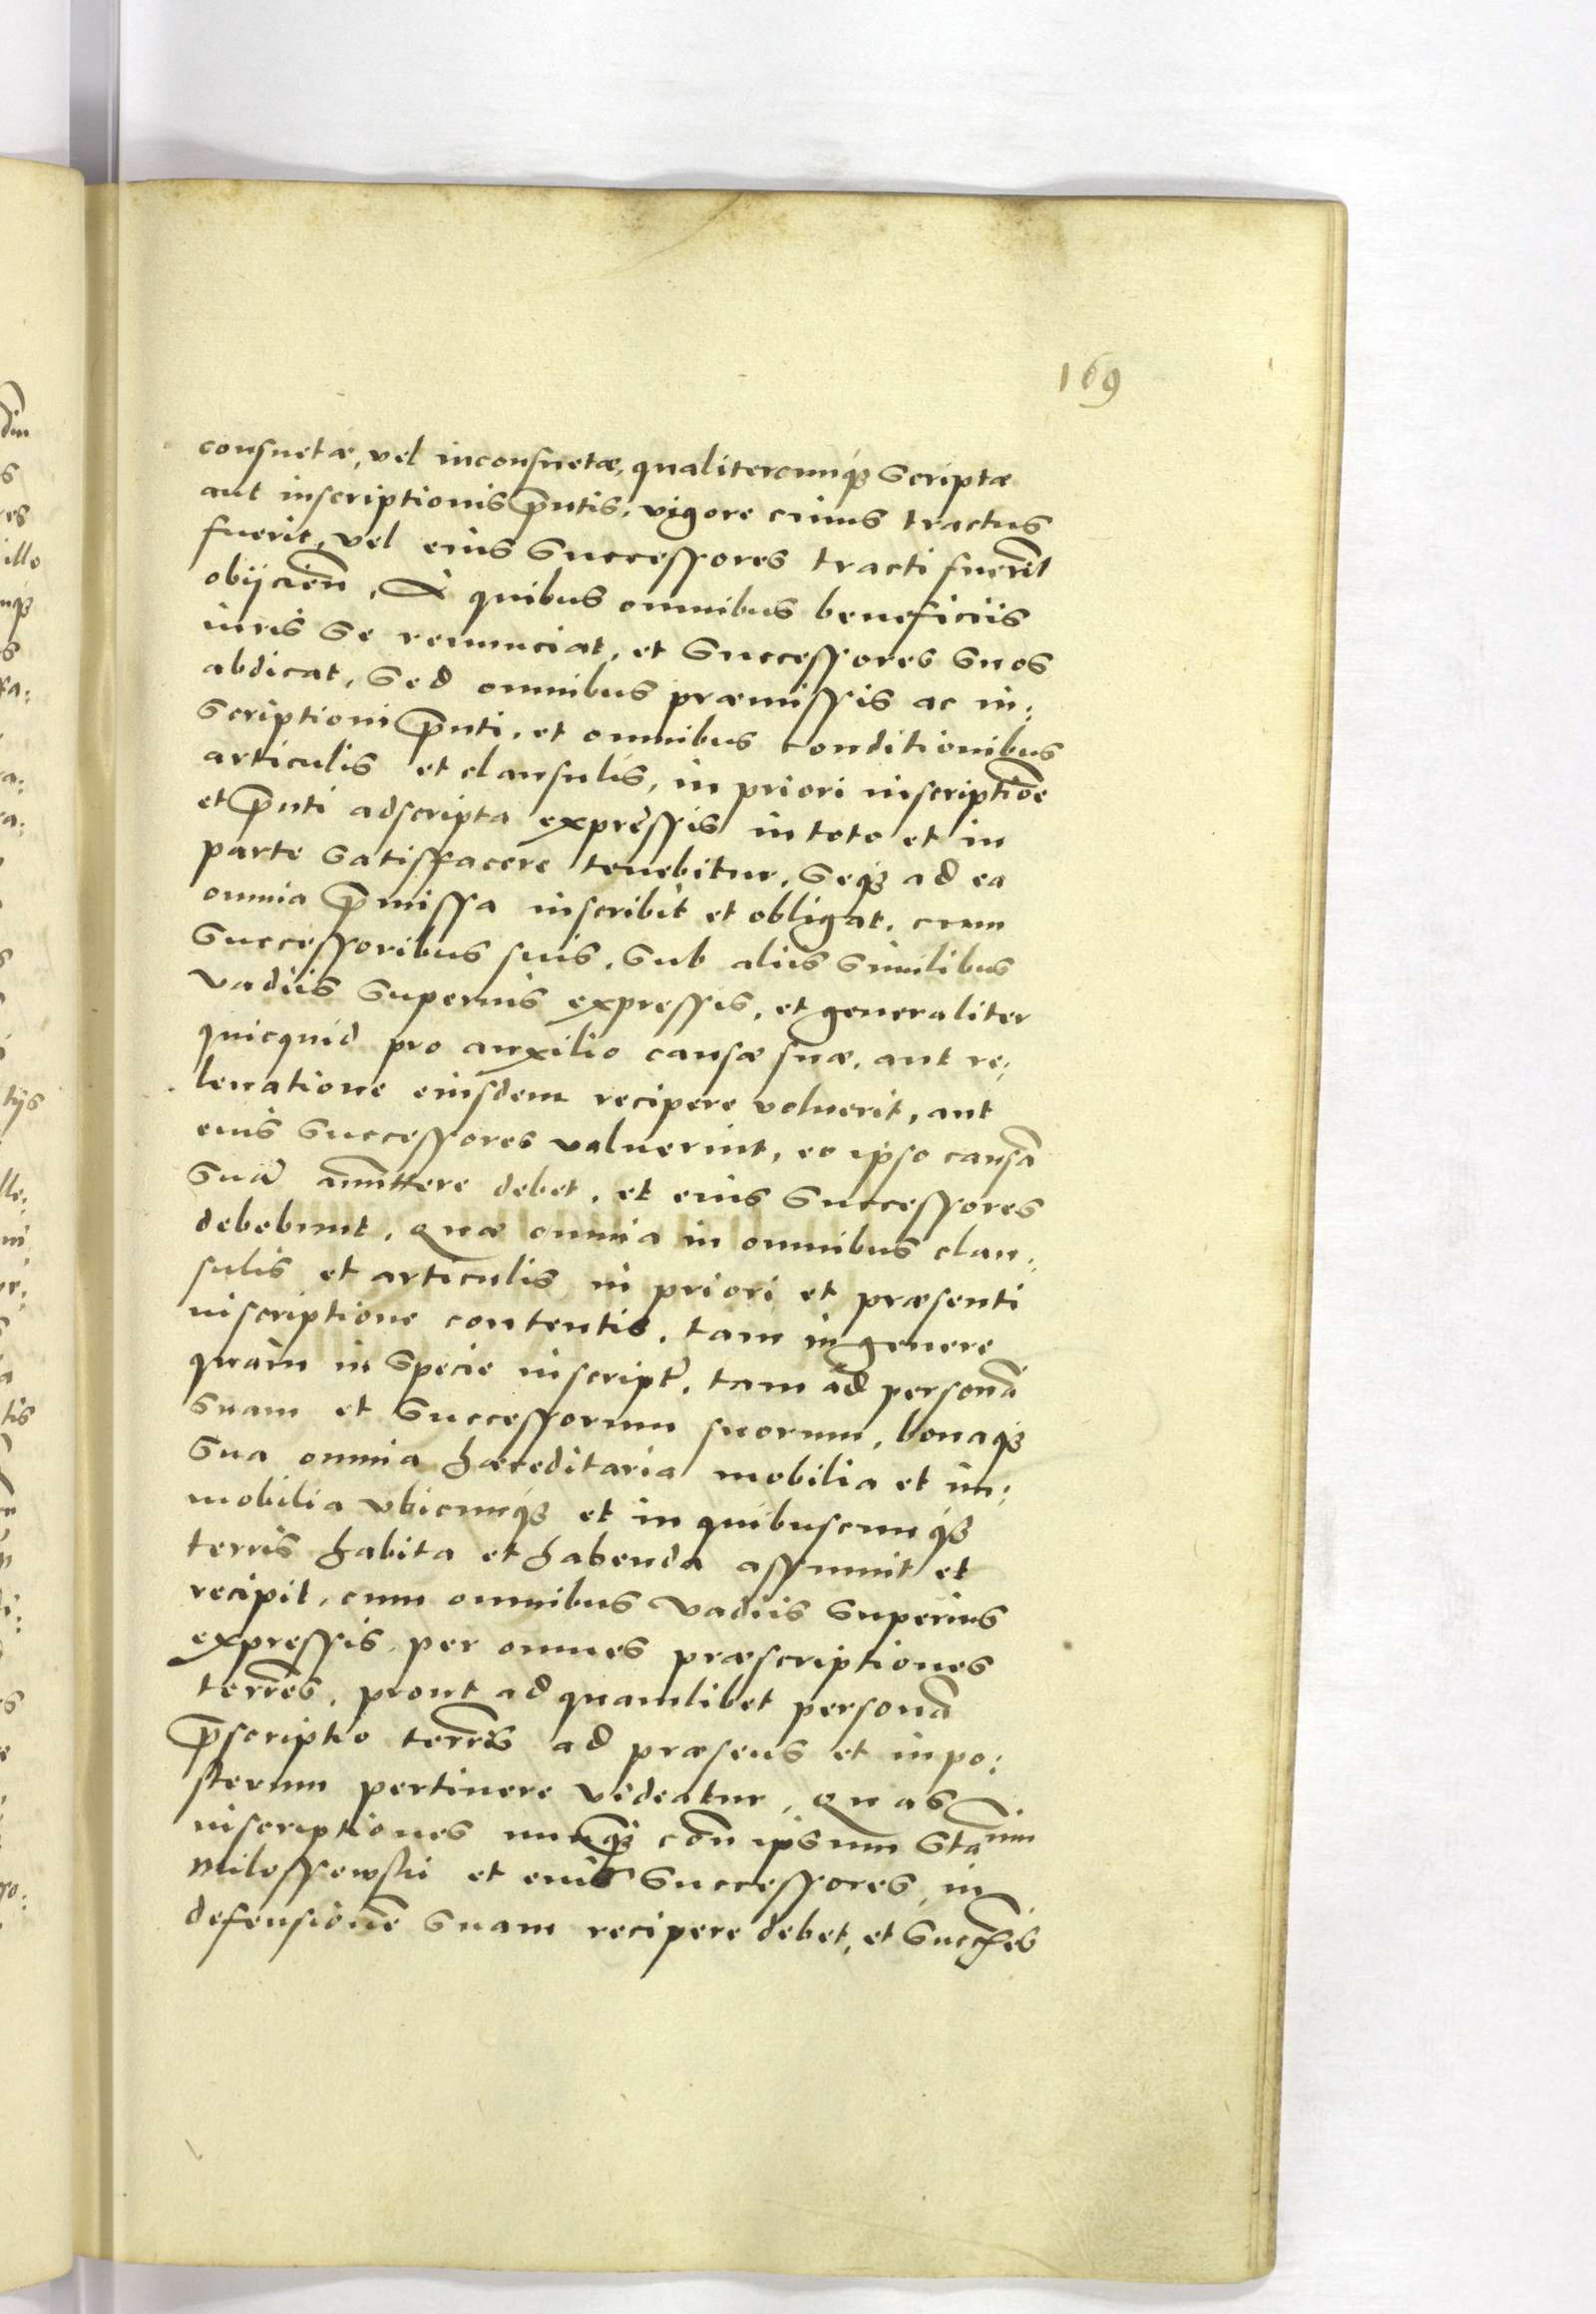 169
consuetæ, vel inconsuetæ, qualitercunq₃ scriptæ
aut inscriptionis p̄ntis, vigore cuius tractus
fuerit, vel eius successores tracti fuer̄it
obijcien̄, A quibus omnibus beneficiis
iuris se renunciat, et successores suos
abdicat, sed omnibus præmissis ac in:
scriptioni p̄nti, et omnibus conditionibus
articulis et clausulis, in priori inscriptiōe
et p̄nti adscripta expressis in toto et in
parte satisfacere tenebitur, seq₃ ad ea
omnia p̄missa inscribit et obligat, cum
successoribus suis, sub aliis similibus
vadiis superius expressis, et generaliter
quicquid pro auxilio causæ suæ, aut re:
levatione eiusdem recipere voluerit, aut
eius successores valuerint, eo ipso causā
suā amittere debet, et eius successores
debebunt, Quæ omnia in omnibus clau:
sulis et articulis in priori et præsenti
inscriptione contentis, tam in genere
quàm in specie inscript̄, tam ad personā
suam et successorum suorum, bonaq₃
sua omnia hæreditaria mobilia et im:
mobilia vbicunq₃ et in quibuscunq₃
terris habita et habenda assumit et
recipit, cum omnibus vadiis superius
expressis per omnes præscriptiones
terr̄es, prout ad quamlibet personā
p̄scriptio terr̄is ad præsens et in po:
sterum pertinere videatur, Quas
inscriptiones nunq₃ con̄ ipsum Sta͞num
Milessewski et eius successores, in
defensionē suam recipere debet, et succ̄es